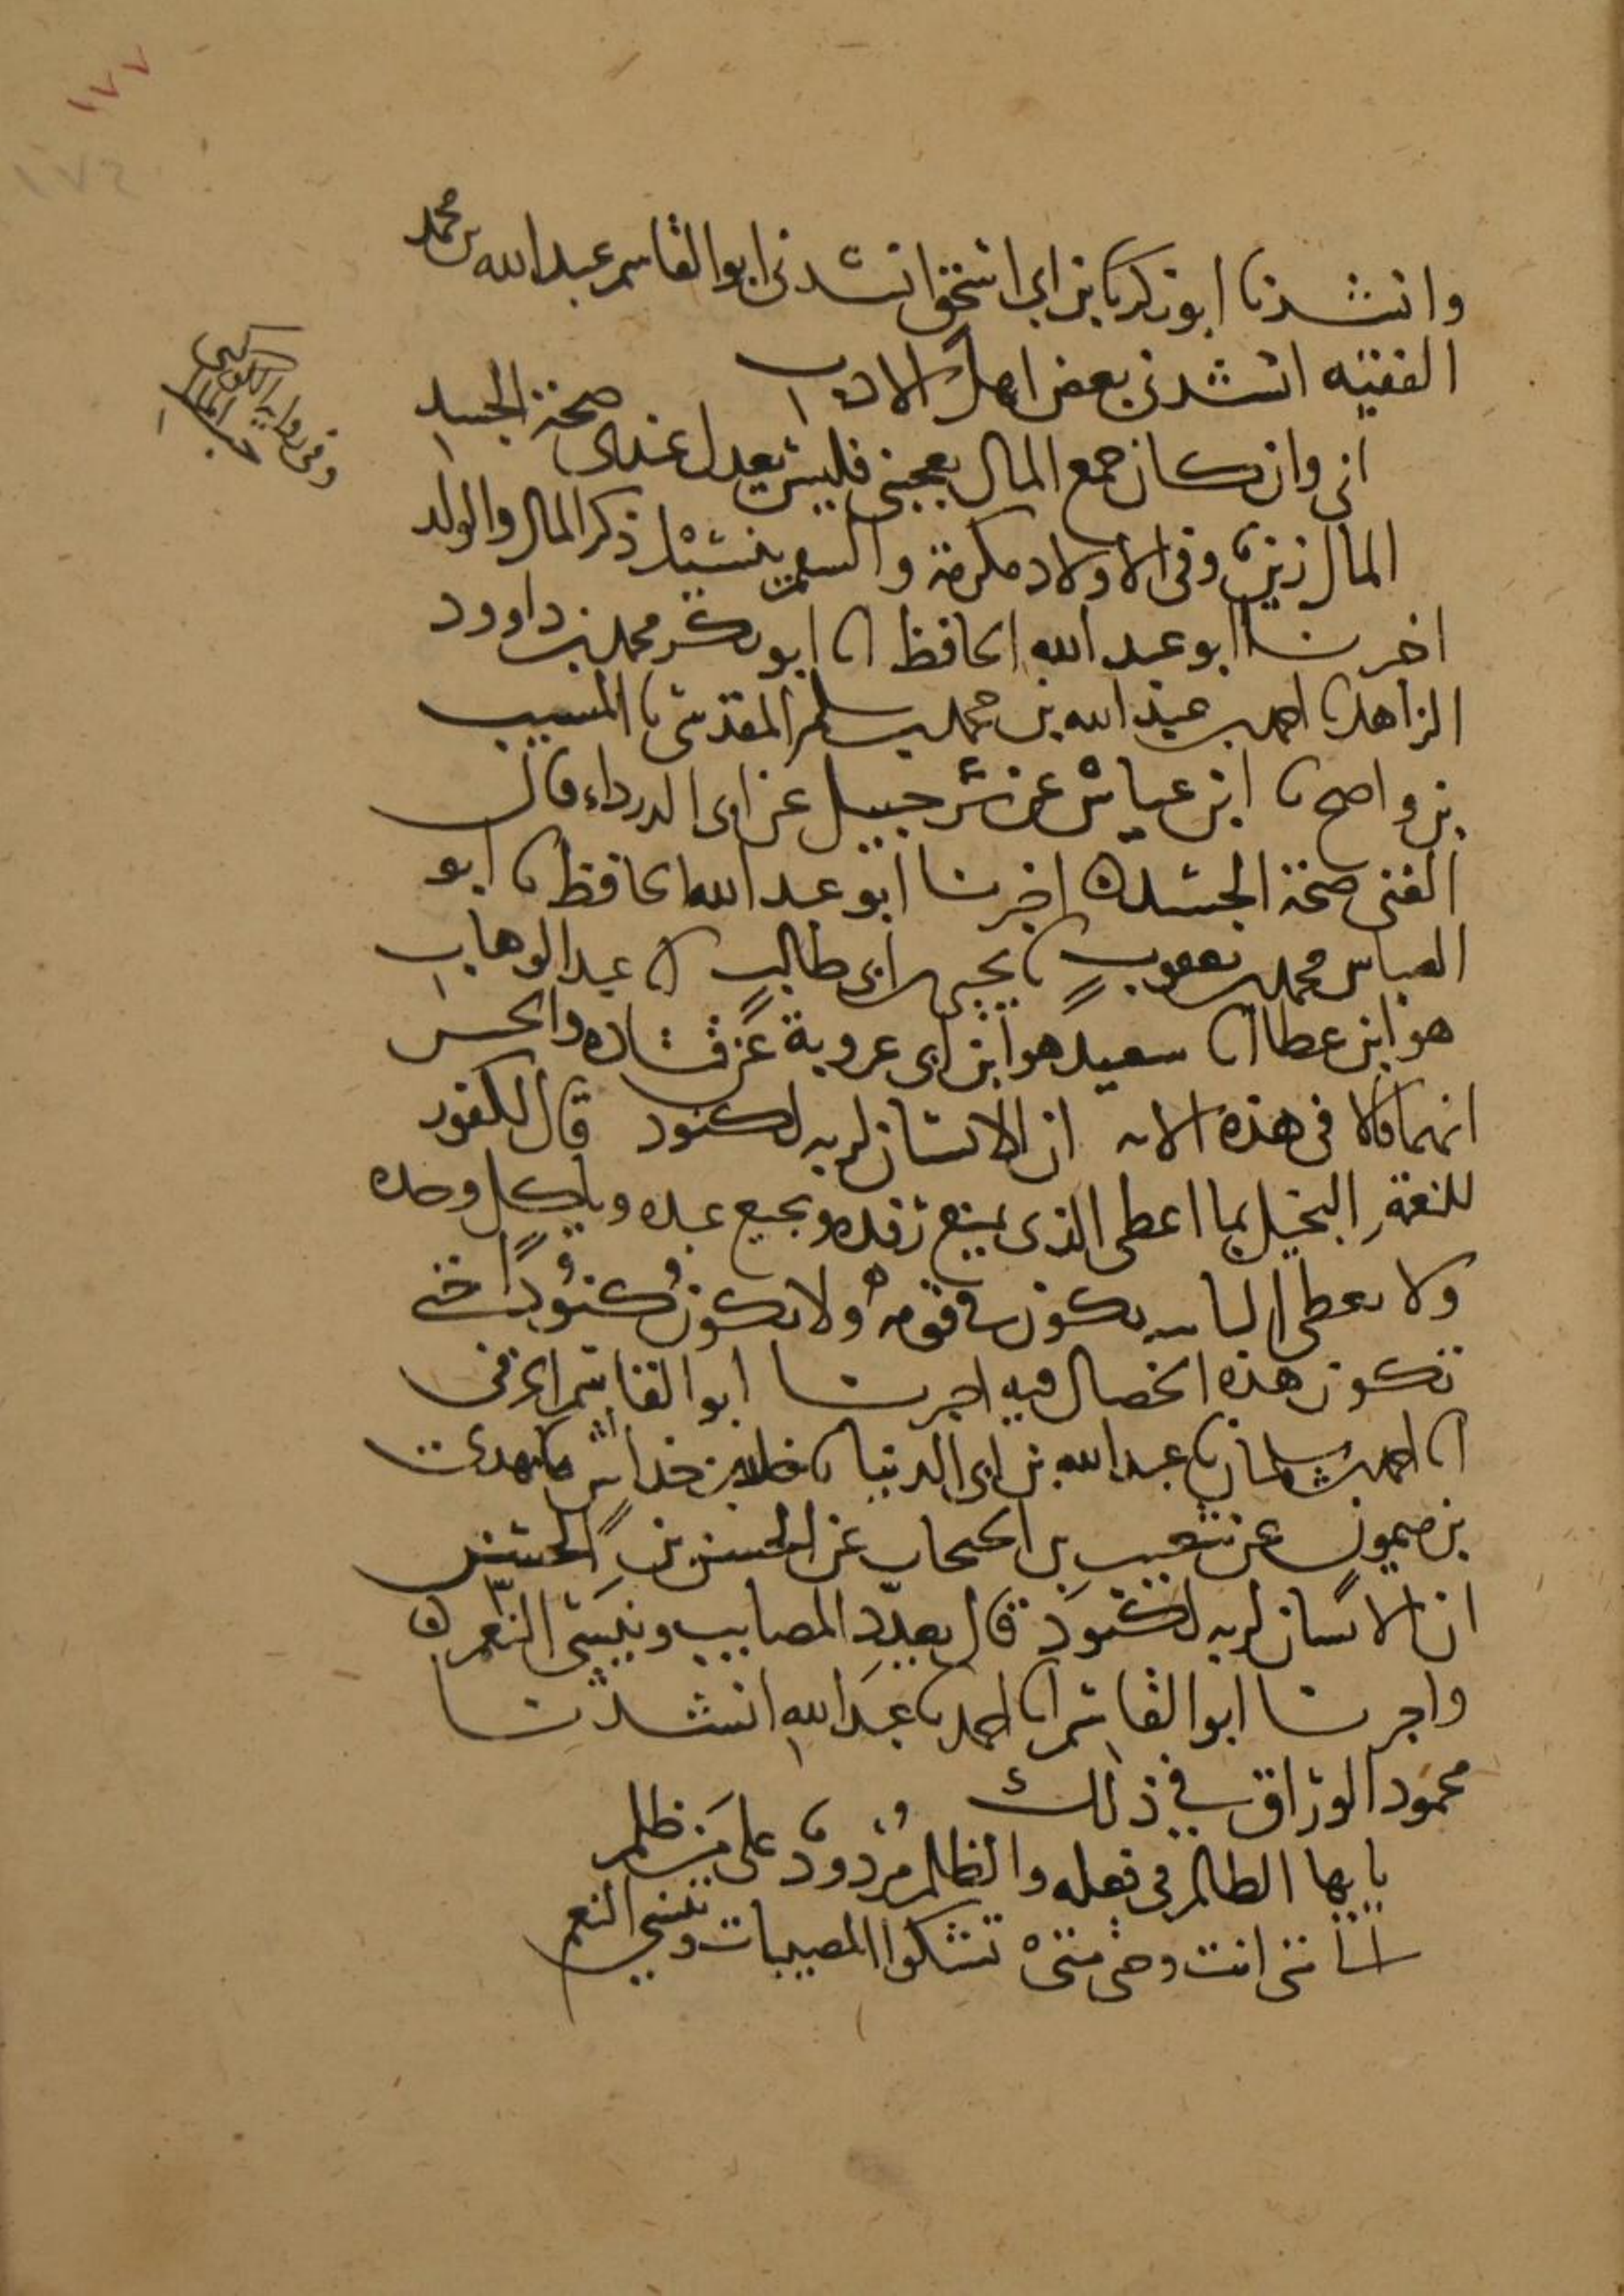 ١٧٧
١٧٤
وانشدنا ابو زكريا بن ابي اسحق انشدني ابو القاسم عبد الله بن محمد
الفقيه انشدني بعض اهل الادب
اني وان كان جمع المال يعجبني فليس يعدل عندي صحة الجسد
المال زين وفي الاولاد مكرمة والسقم ينسيك ذكر المال والولد
اخبرنا ابو عبد الله الحافظ انا ابو بكر محمد بن داوود
الزاهد نا احمد بن عبد الله بن محمد بن سلم المقدسي نا المسيب
بن واضح نا ابن عياش عن شرحبيل عن ابي الدرداء قال
الغنى صحة الجسد ه اخبرنا ابو عبد الله الحافظ نا ابو
العباس محمد بن يعقوب نا يحيى بن ابي طالب انا عبد الوهاب
هو ابن عطا انا سعيد هو ابن ابي عروبة عن قتاده والحسن
انهما قالا في هذه الايه ان الانسان لربه لكنود قال الكفور
للنعمة البخيل بما اعطى الذي يمنع رفده ويجيع عبده وياكل وحده
ولا يعطي النايبه تكون في قومه ولا يكون كنودا حتى
تكون هذه الخصال فيه اخبرنا ابو القاسم الحرفي
انا احمد بن سلمان نا عبد الله بن ابي الدنيا نا خالد بن خداش نا مهدي
بن ميمون عن شعيب بن الحبحاب عن الحسن بن الحسن
ان الانسان لربه لكنود قال يعدد المصايب وينسى النعم ه
واخبرنا ابو القاسم انا احمد نا عبد الله انشدنا
محمود الوراق في ذلك
يا ايها الظالم في فعله والظلم مردود على من ظلم
الى متى انت وحتى متى تشكوا المصيبات وتنسى النعم
وفي رواية
حب المال